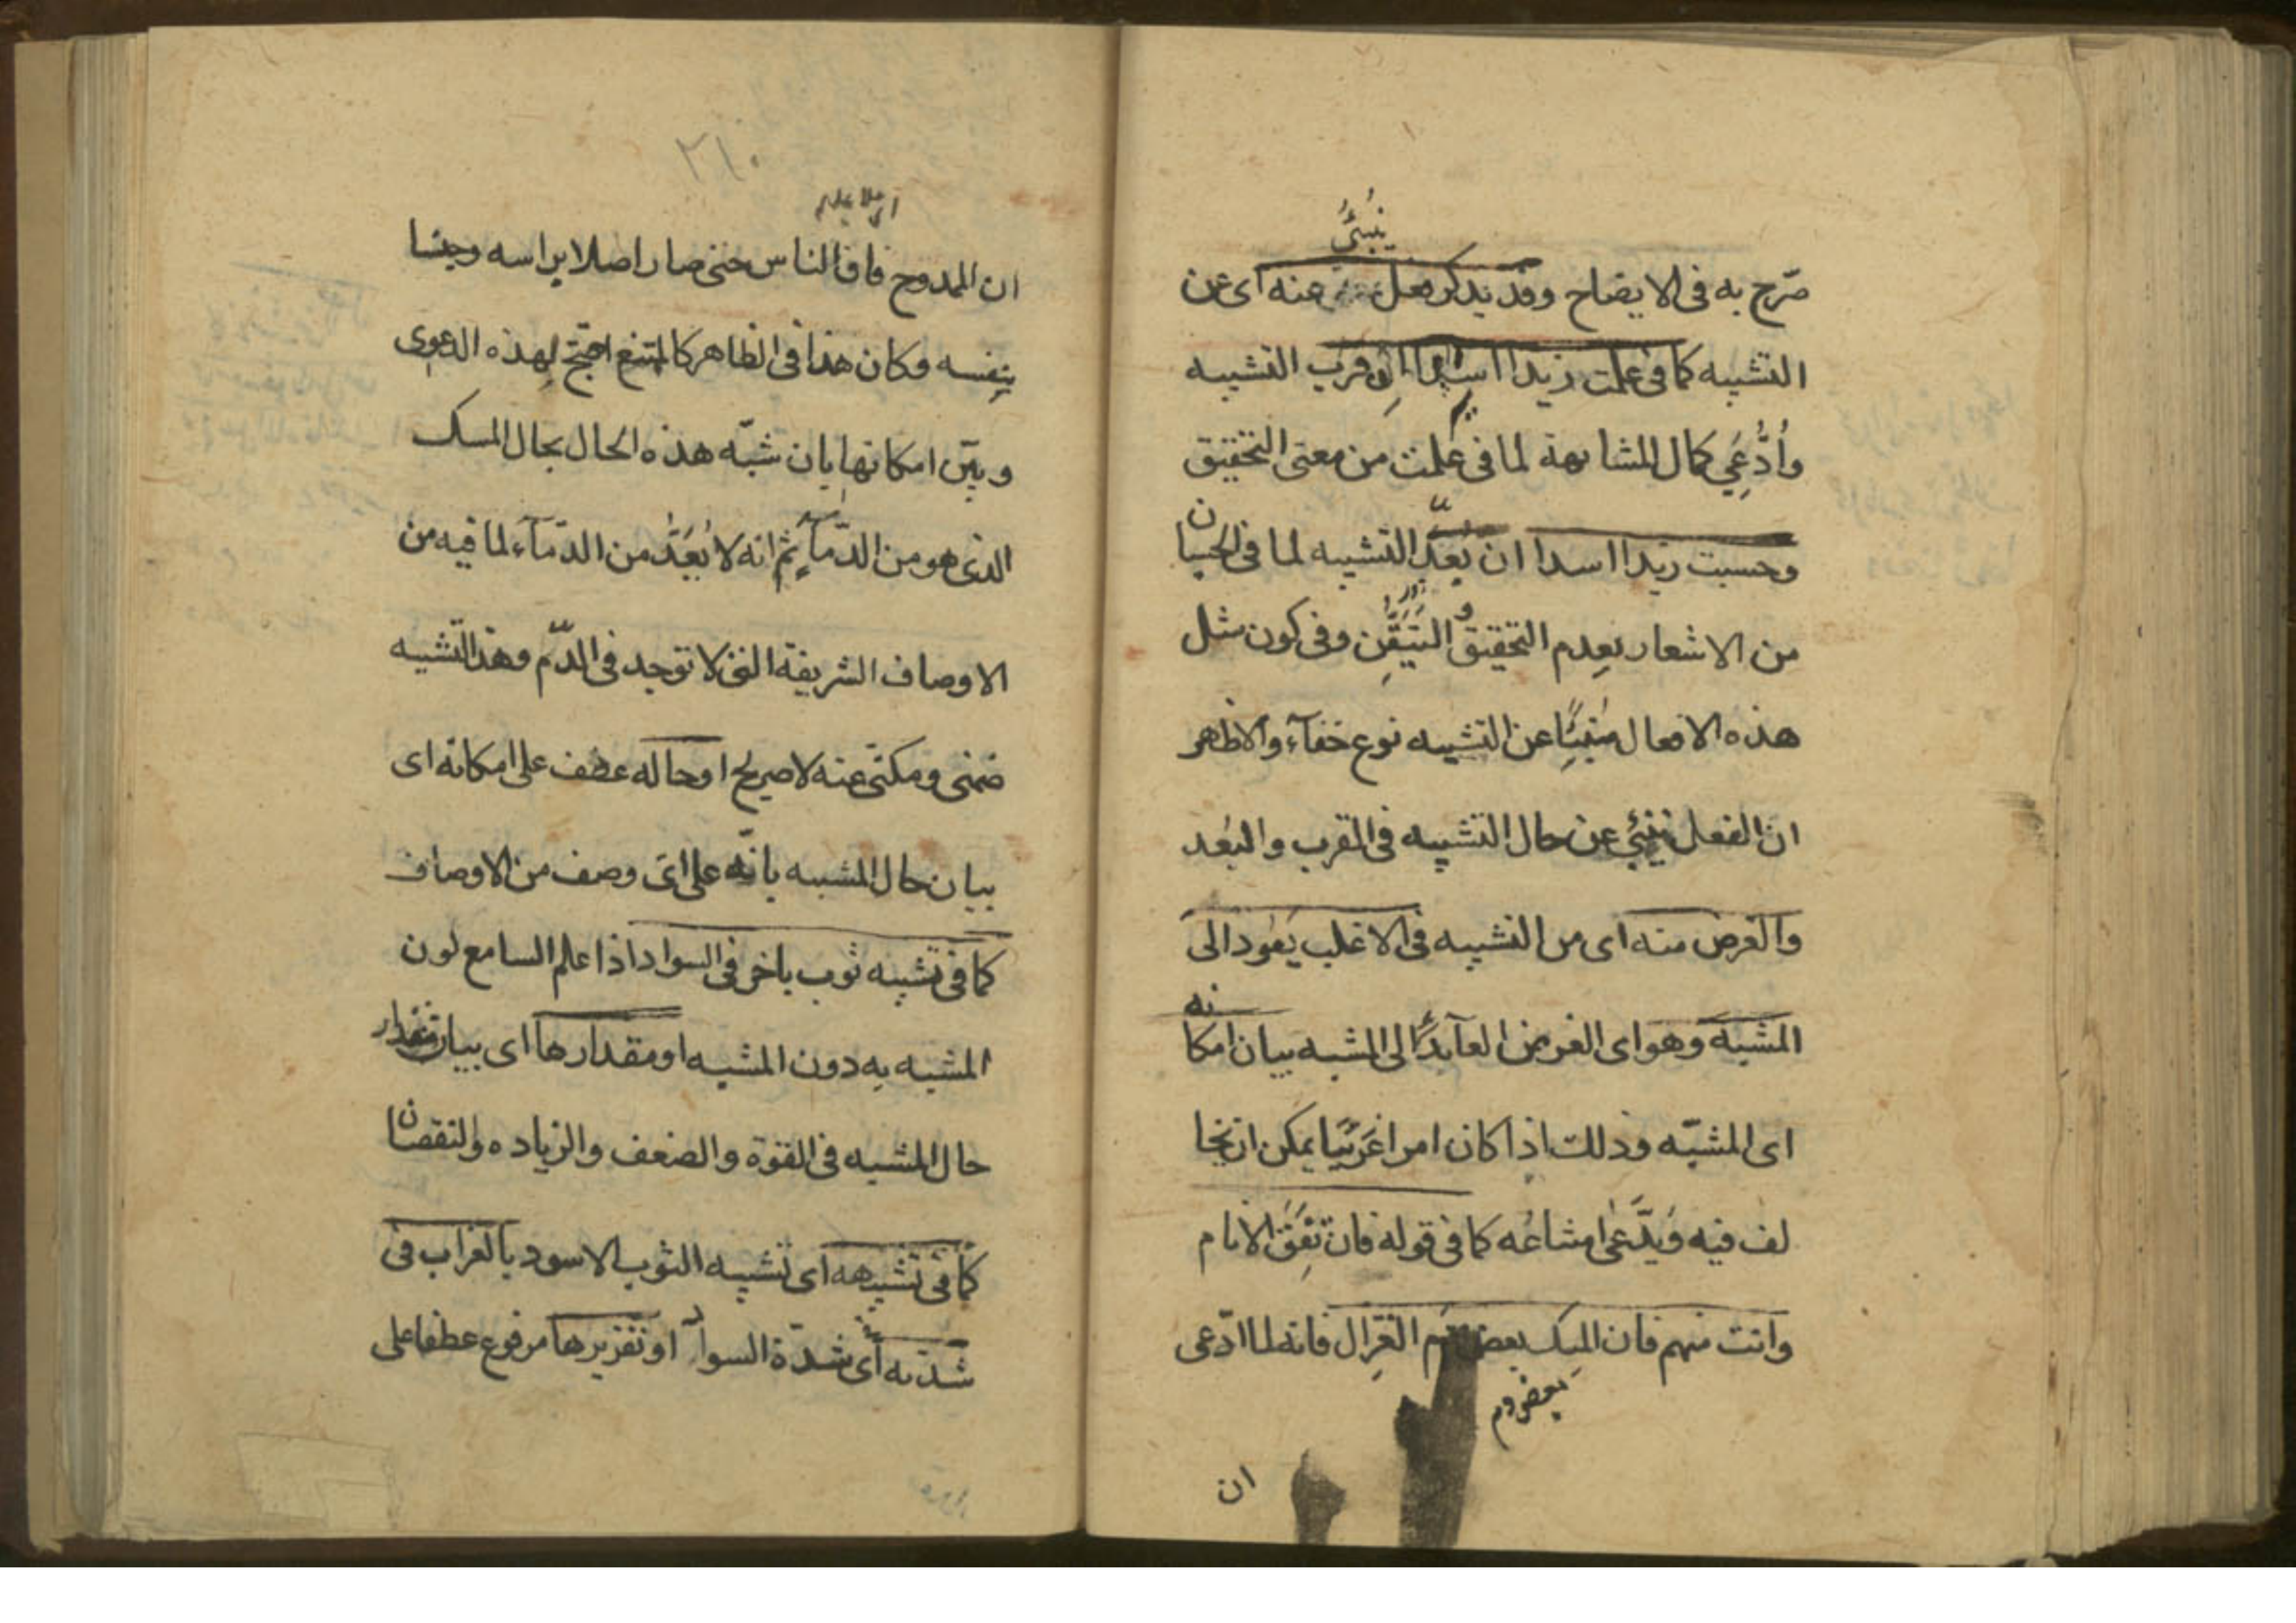 ينبئ
صرّح به فى الايضاح وقد يذكر فعل عنه اى عن
التشبيه كما فى علمت زيدا اسدا ان قرب التشبيه
وادُّعِي كمال المشابهة لما فى علمت من معنى التحقيق
وحسبت زيدا اسدا ان بُعِّد التشبيه لما فى الحسبان
من الاشعار بعدم التحقيق و التيَقُّن وفى كون مثل
هذه الافعال منبئًا عن التشبيه نوع خفآء والاظهر
ان الفعل ينبئ عن حال التشبيه فى القرب والبُعد
والغرض منه اى من التشبيه فى الاغلب يعود الى
المشبه وهو اى الغرض العآيد الى المشبه بيان امكانه
اى المشبّه وذلك اذا كان امرا غريبًا يمكن ان يخا
لف فيه ويدَّعى امتناعه كما فى قوله فان تفق الانام
وانت منهم فان المسك بعض دم الغزال فانه لما ادّعى
بعض دم
ان
٢١٠
ان الممدوح فاق الناس حتى صار اصلا براسه وجنسا
بنفسه وكان هذا فى الظاهر كالممتنع احتجّ لهذه الدعوى
وبيّن امكانها بان شبّه هذه الحال بحال المسك
الذى هو من الدّمآء ثم انه لا يُعَدُّ من الدّمآء لما فيه من
الاوصاف الشريفة التى لا توجد فى الدّم وهذا التشبيه
ضمنى ومكنّى عنه لا صريح او حاله عطف على امكانه اى
بيان حال المشبه بانّه على اىّ وصف من الاوصاف
كما فى تشبيه ثوب باخر فى السواد اذا علم السامع لون
المشبه به دون المشبه او مقدارها اى بيان مقدار
حال المشبه فى القوة والضعف والزياده والنقصان
كما فى تشبيهه اى تشبيه الثوب الاسود بالغراب فى
شدّته اى شدّة السواد او تقريرها مرفوع عطفا على